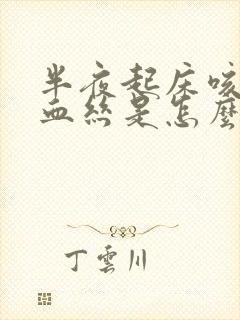 半夜起床咳
血丝是怎麼
丁雲川